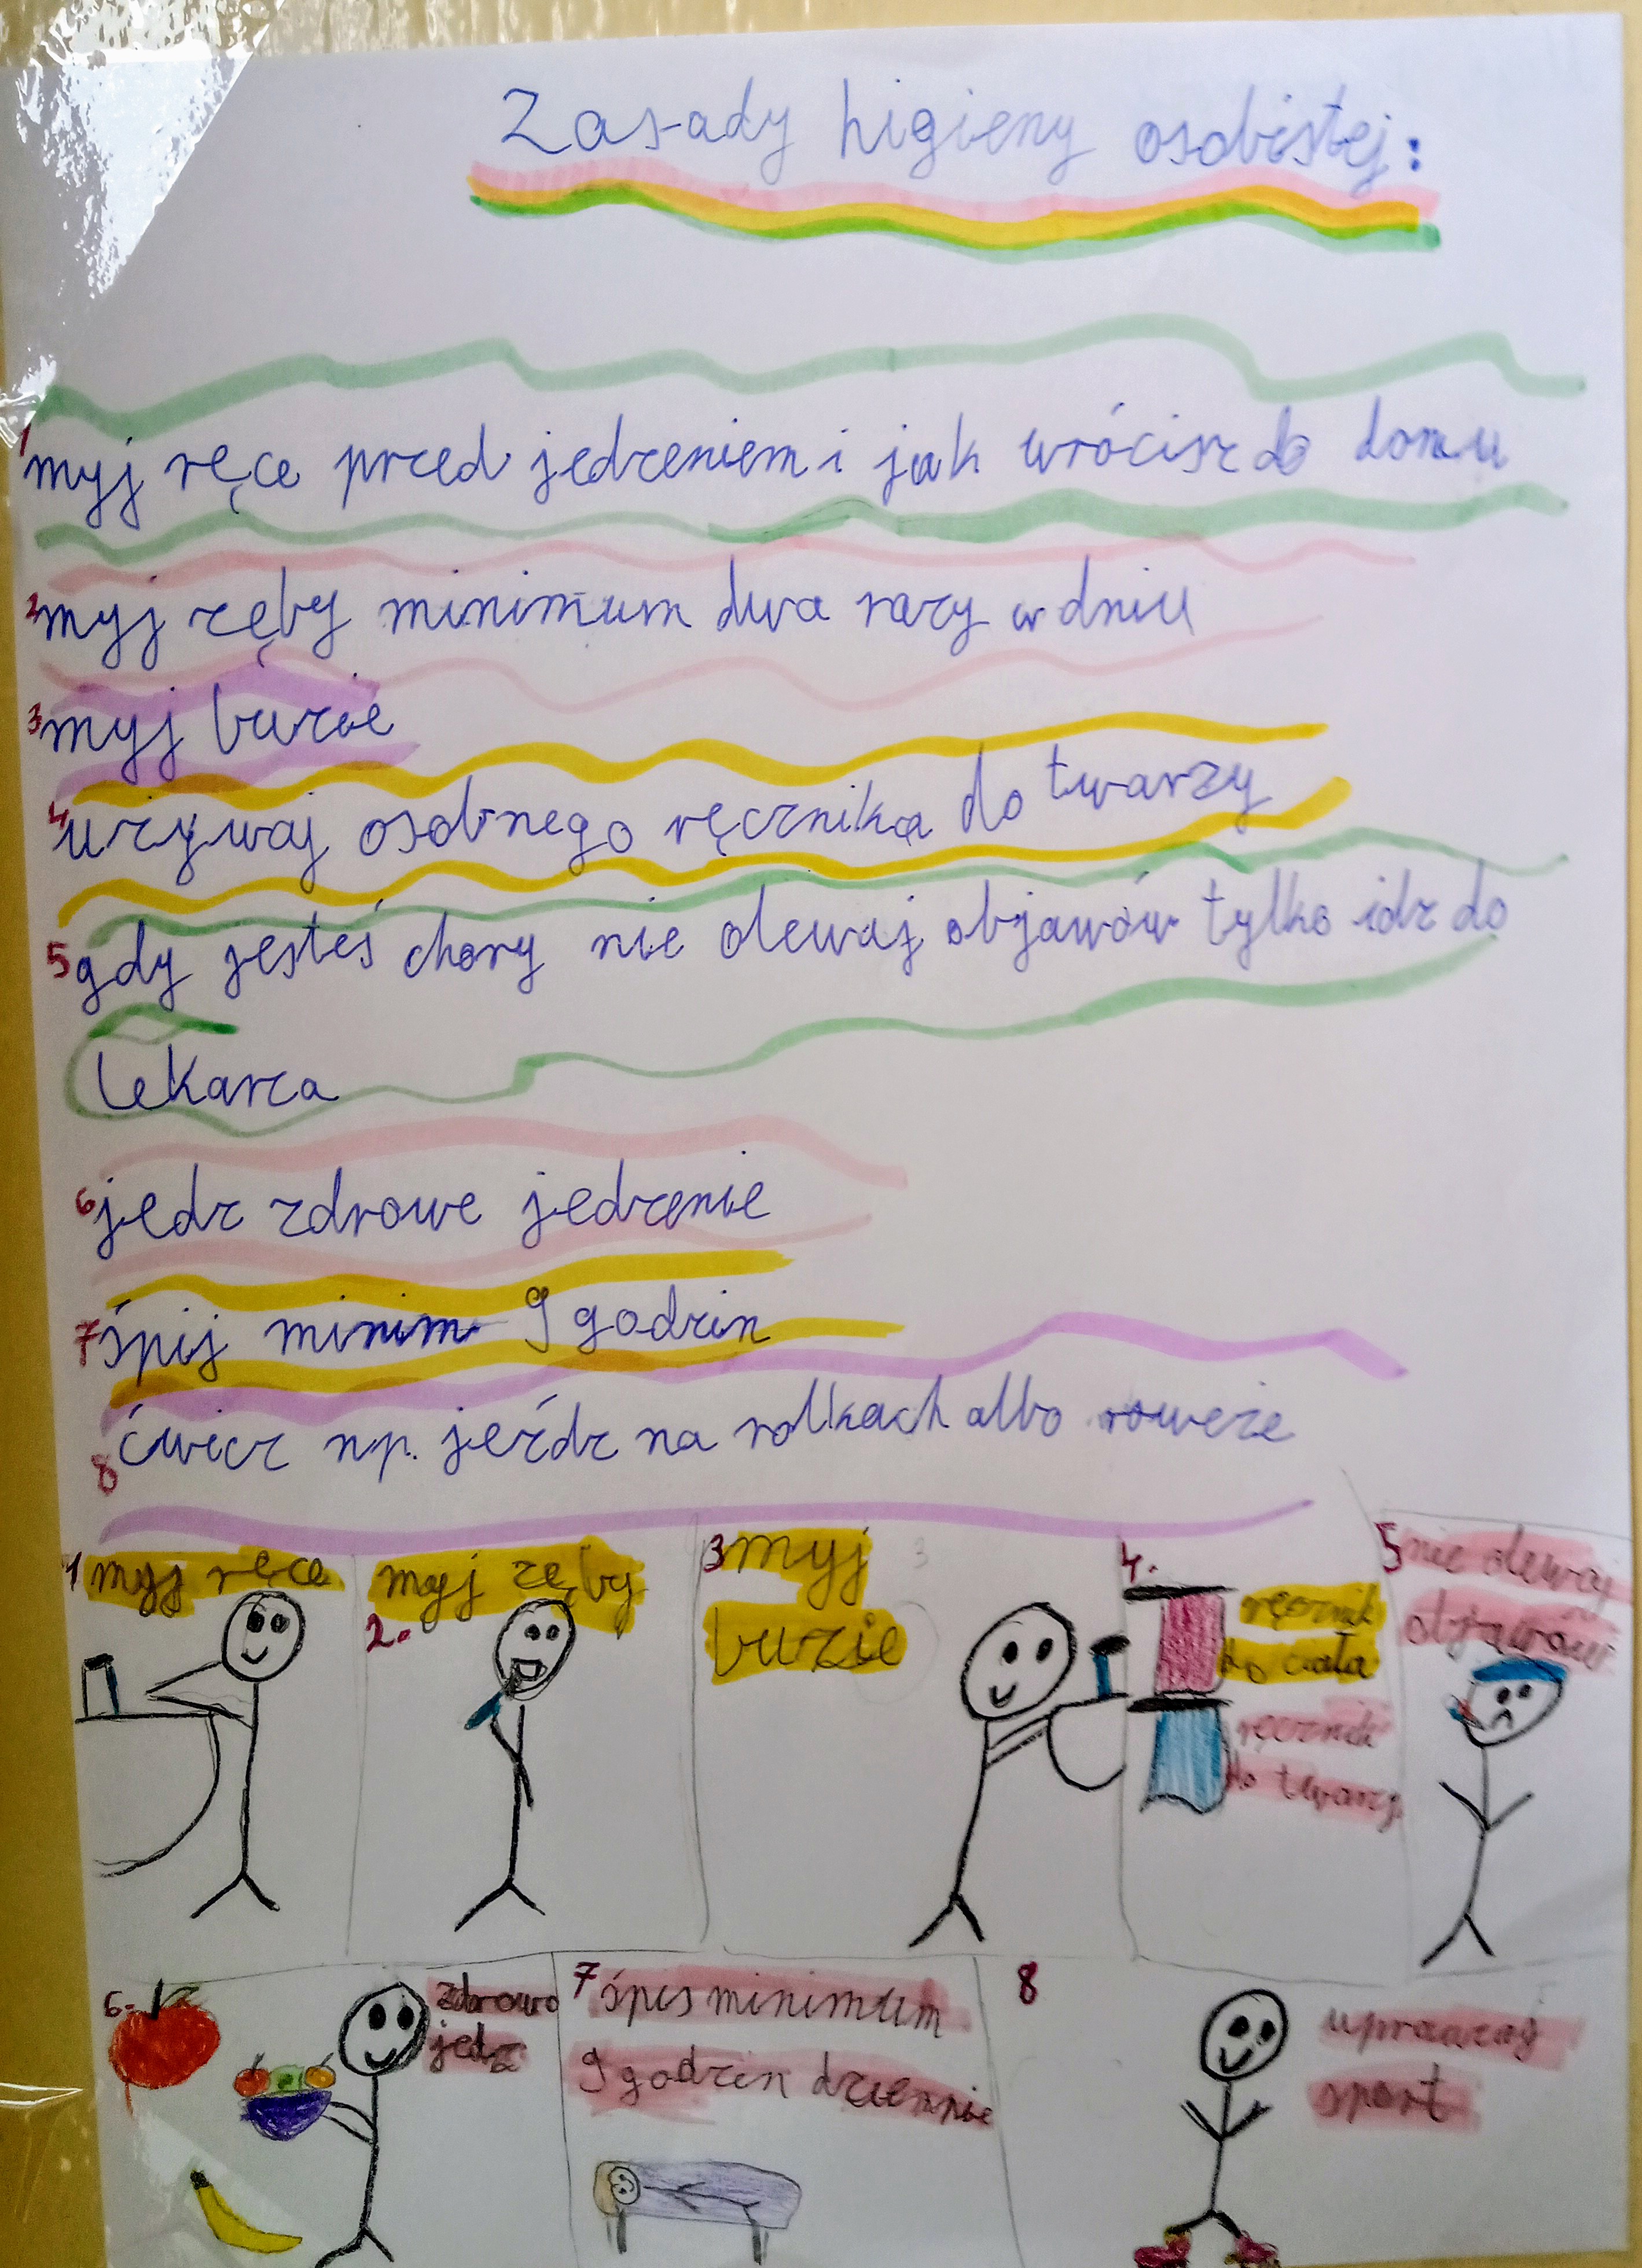 Zasady higieny osobistej:
1 myj ręce przed jedzeniem i jak wrócisz do domu
2 myj zęby minimum dwa razy w dniu
3 myj buzie
4 używaj osobnego ręcznika do twarzy
5 gdy jesteś chory nie olewaj objawów tylko idz do
lekarza
6 jedz zdrowe jedzenie
7 śpij minim 9 godzin
8 ćwicz np. jeźdz na rolkach albo rowerze
1 myj ręce
myj zęby
2.
3 myj
buzie
3
4.
ręcznik
do ciała
ręcznik
do twarzy
5 nie olewaj
objawów
6.
zdrowo
jedz
7 śpis minimum
9 godzin dziennie
8
uprawiaj
sport